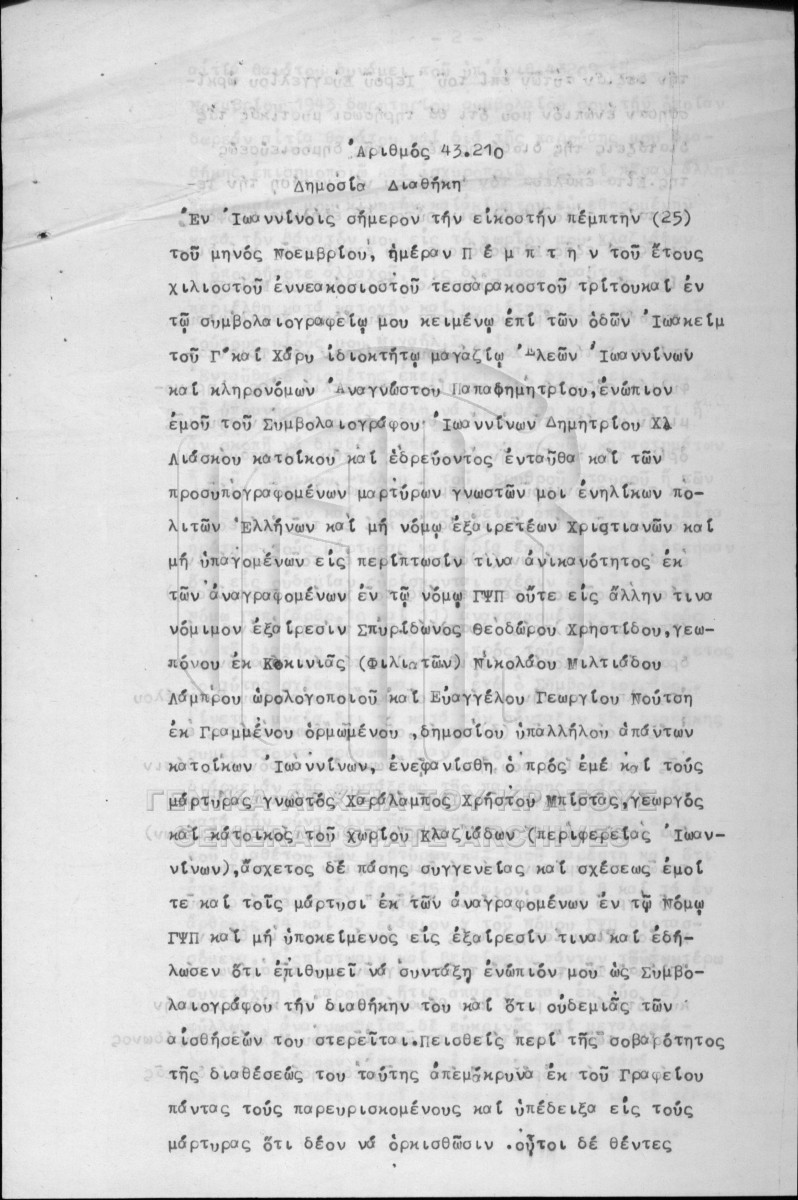 Ἀριθμός 43.210
Δημοσία Διαθήκη
Ἐν Ἰωαννίνοις σήμερον τήν εἰκοστήν πέμπτην (25)
τοῦ μηνός Νοεμβρίου, ἡμέραν Π έ μ π τ η ν τοῦ ἔτους
χιλιοστοῦ ἐννεακοσιοστοῦ τεσσαρακοστοῦ τρίτουκαί ἐν
τῷ συμβολαιογραφείῳ μου κειμένῳ ἐπί τῶν ὁδῶν Ἰωακείμ
τοῦ Γ΄καί Χάρυ ἰδιοκτήτῳ μαγαζίῳ Ἀλεῶν Ἰωαννίνων
καί κληρονόμων Ἀναγνώστου Παπαδημητρίου,ἐνώπιον
ἐμοῦ τοῦ Συμβολαιογράφου Ἰωαννίνων Δημητρίου Χλ
Λιάσκου κατοίκου καί ἑδρεύοντος ἐνταῦθα καί τῶν
προσυπογραφομένων μαρτύρων γνωστῶν μοι ἐνηλίκων πο-
λιτῶν Ἑλλήνων καί μή νόμῳ ἐξαιρετέων Χριστιανῶν καί
μή ὑπαγομένων εἰς περίπτωσίν τινα ἀνικανότητος ἐκ
τῶν ἀναγραφομένων ἐν τῷ νόμῳ ΓΨΠ οὔτε εἰς ἄλλην τινα
νόμιμον ἐξαίρεσιν Σπυρίδωνος Θεοδώρου Χρηστίδου,γεω-
πόνου ἐκ Κοκινιᾶς (Φιλιατῶν) Νικολάου Μιλτιάδου
Λάμπρου ὡρολογοποιοῦ καί Εὐαγγέλου Γεωργίου Νούτση
ἐκ Γραμμένου ὁρμωμένου ,δημοσίου ὑπαλλήλου ἁπάντων
κατοίκων Ἰωαννίνων, ἐνεφανίσθη ὁ πρός ἐμέ καί τούς
μάρτυρας γνωστός Χαράλαμπος Χρήστου Μπίστας,γεωργός
καί κάτοικος τοῦ χωρίου Κλαζιάδων (περιφερείας Ἰωαν-
νίνων),ἄσχετος δέ πάσης συγγενείας καί σχέσεως ἐμοί
τε καί τοῖς μάρτυσι ἐκ τῶν ἀναγραφομένων ἐν τῷ Νόμῳ
ΓΨΠ καί μή ὑποκείμενος εἰς ἐξαίρεσίν τινα καί ἐδή-
λωσεν ὅτι ἐπιθυμεῖ νά συντάξῃ ἐνώπιόν μου ὡς Συμβο-
λαιογράφου τήν διαθήκην του καί ὅτι οὐδεμιᾶς τῶν
αἰσθήσεών του στερεῖται.Πεισθείς περί τῆς σοβαρότητος
τῆς διαθέσεώς του ταύτης ἀπεμάκρυνα ἐκ τοῦ Γραφείου
πάντας τούς παρευρισκομένους καί ὑπέδειξα εἰς τούς
μάρτυρας ὅτι δέον νά ὁρκισθῶσιν .οὗτοι δέ θέντες
ΓΕΝΙΚΑ ΑΡΧΕΙΑ ΤΟΥ ΚΡΑΤΟΥΣ
GENERAL STATE ARCHIVES